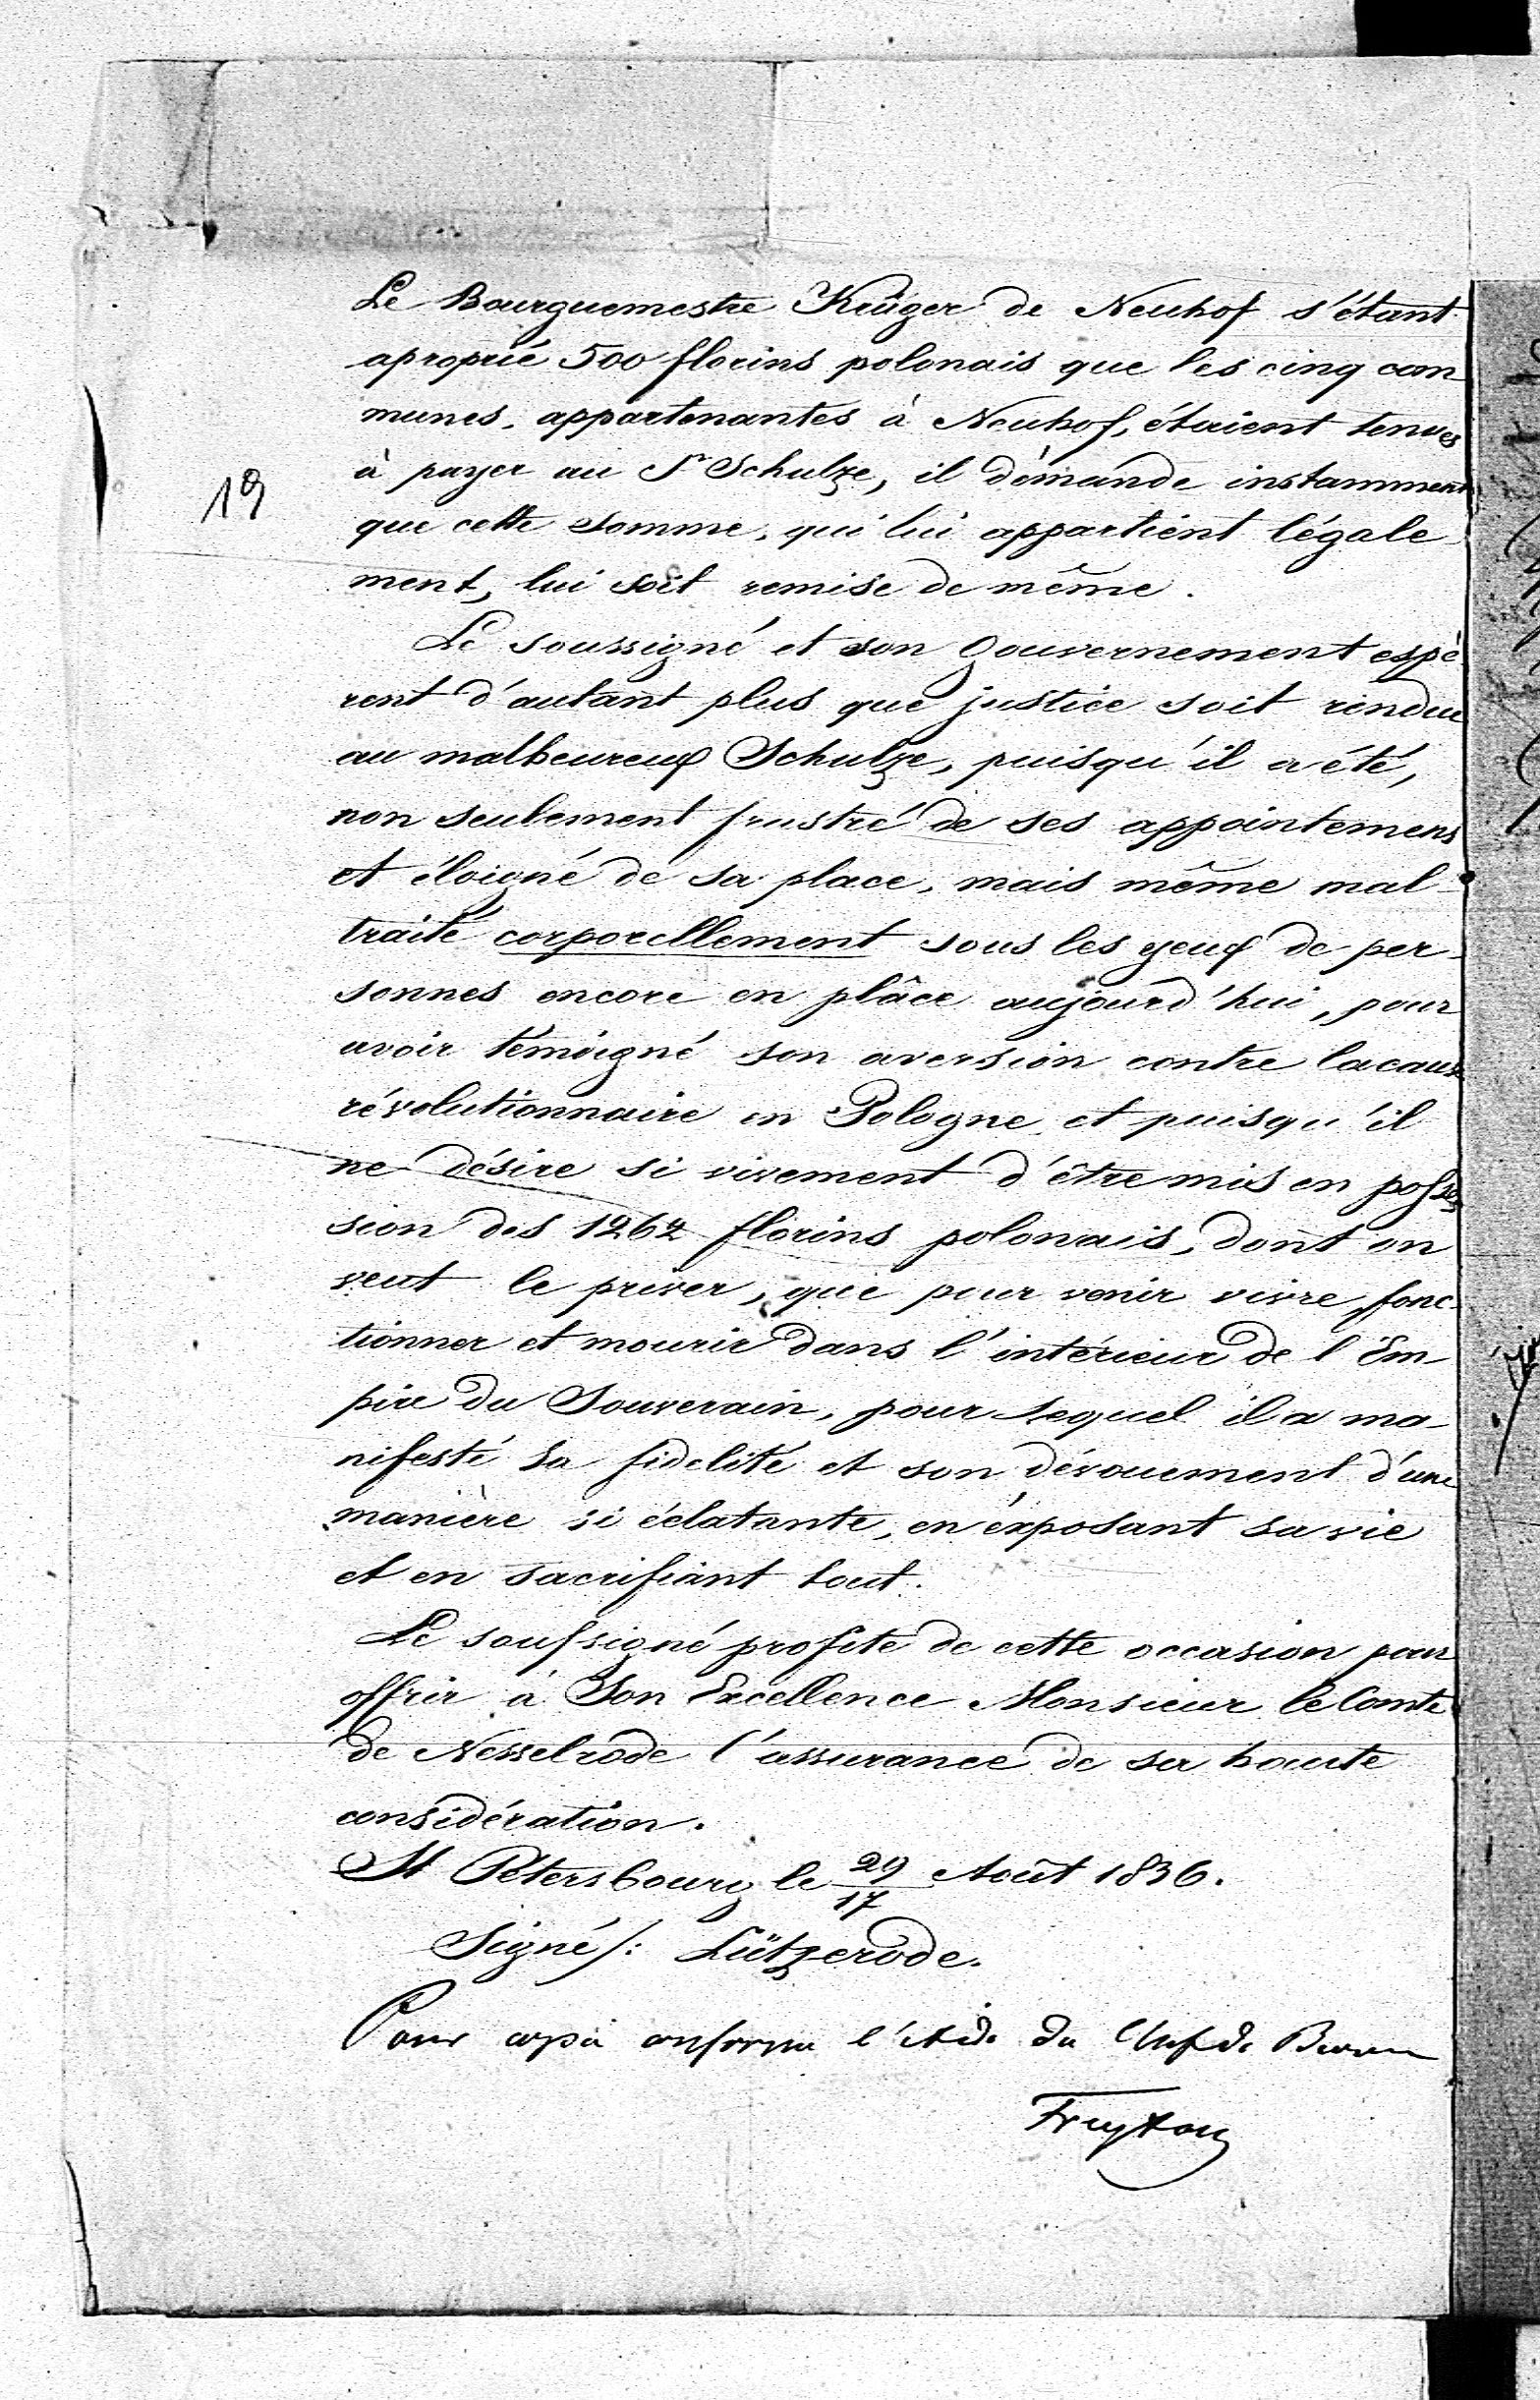 Le Bourguemestre Krüger de Neuhof s'étant
aproprié 500 florins polonais que les cinq com
munes, appartenantes à Neuhof, étaient tenues
à payer au Sr Schulze, il démande instamment
19
que cette somme, qui lui appartient légale
ment, lui soit remise de même.
Le soussigné et son Gouvernement espè
rent d'autant plus que justice soit rendue
au malheureux Schulze, puisqu'il a été,
non seulement frustré de ses appointemens
et éloigné de sa place, mais même mal-
traité corporellement sous les yeux de per-
sonnes encore en plâce aujourd'hui, pour
avoir témoigné son aversion contre la cause
révolutionnaire en Pologne et puisqu'il
ne désire si vivement d'être mis en posses
sion des 1264 florins polonais, dont on
veut le priver, que pour venir vivre, fonc-
tionner et mourir dans l'intérieur de l'Em-
pire du Souverain, pour lequel il a ma-
nifesté sa fidelité et son dévouement d'une
manière si éclatante, en éxposant sa vie
et en sacrifiant tout.
Le soussigné profite de cette occasion pour
offrir à Son Excellence Monsieur le Comte
de Nesselrode l'assurance de sa haute
considération.
St Pétersbourg le 29/17 Août 1836.
Signé/: Lützerode.
Pour copie conforme l'Aide du Chef de Bureau